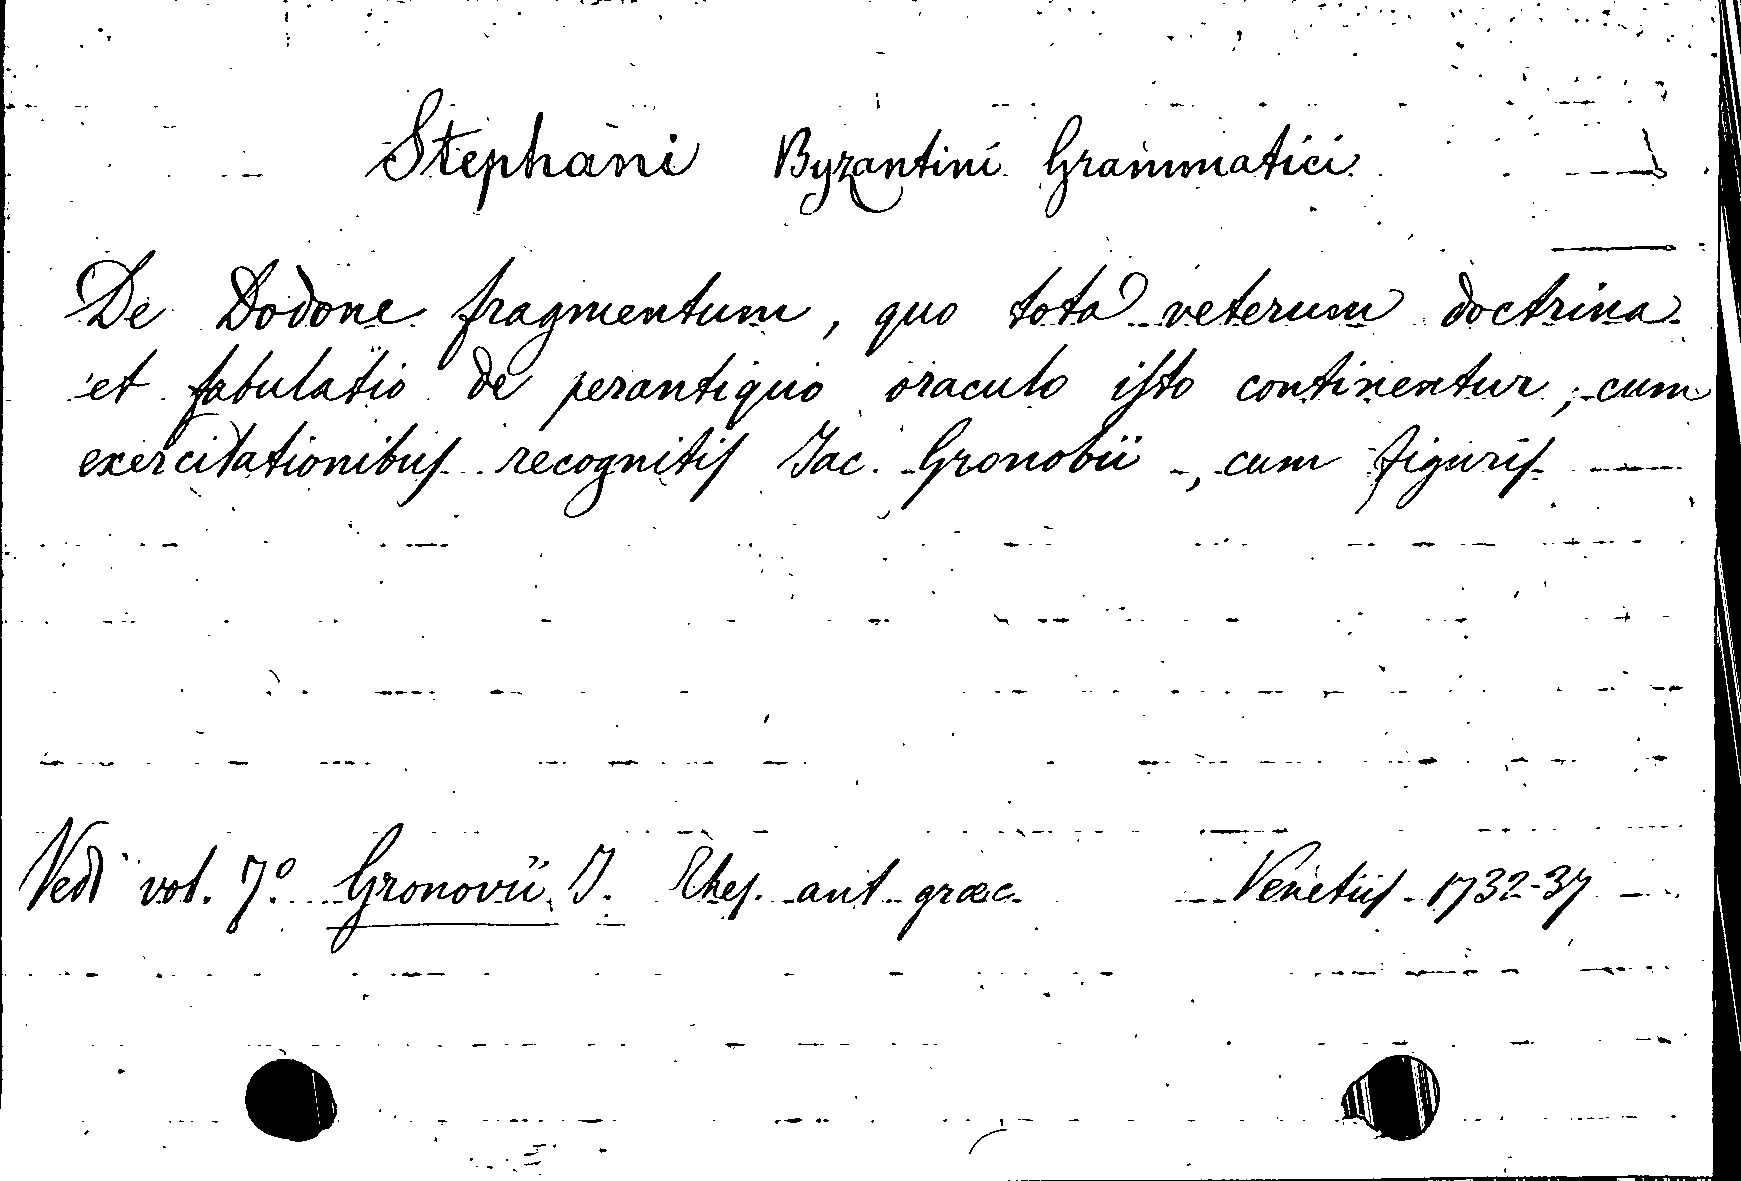 Stephani Byzantini Grammatici
De Dodone fragmentum, quo tota veterum doctrina
et fabulatio de perantiquo oraculo isto continentur, cum
exercitationibus recognitis Jac. Gronobii, cum figuris
Vedi vol. 7º Gronovii J. Thes. ant græc. Venetiis 1732-37